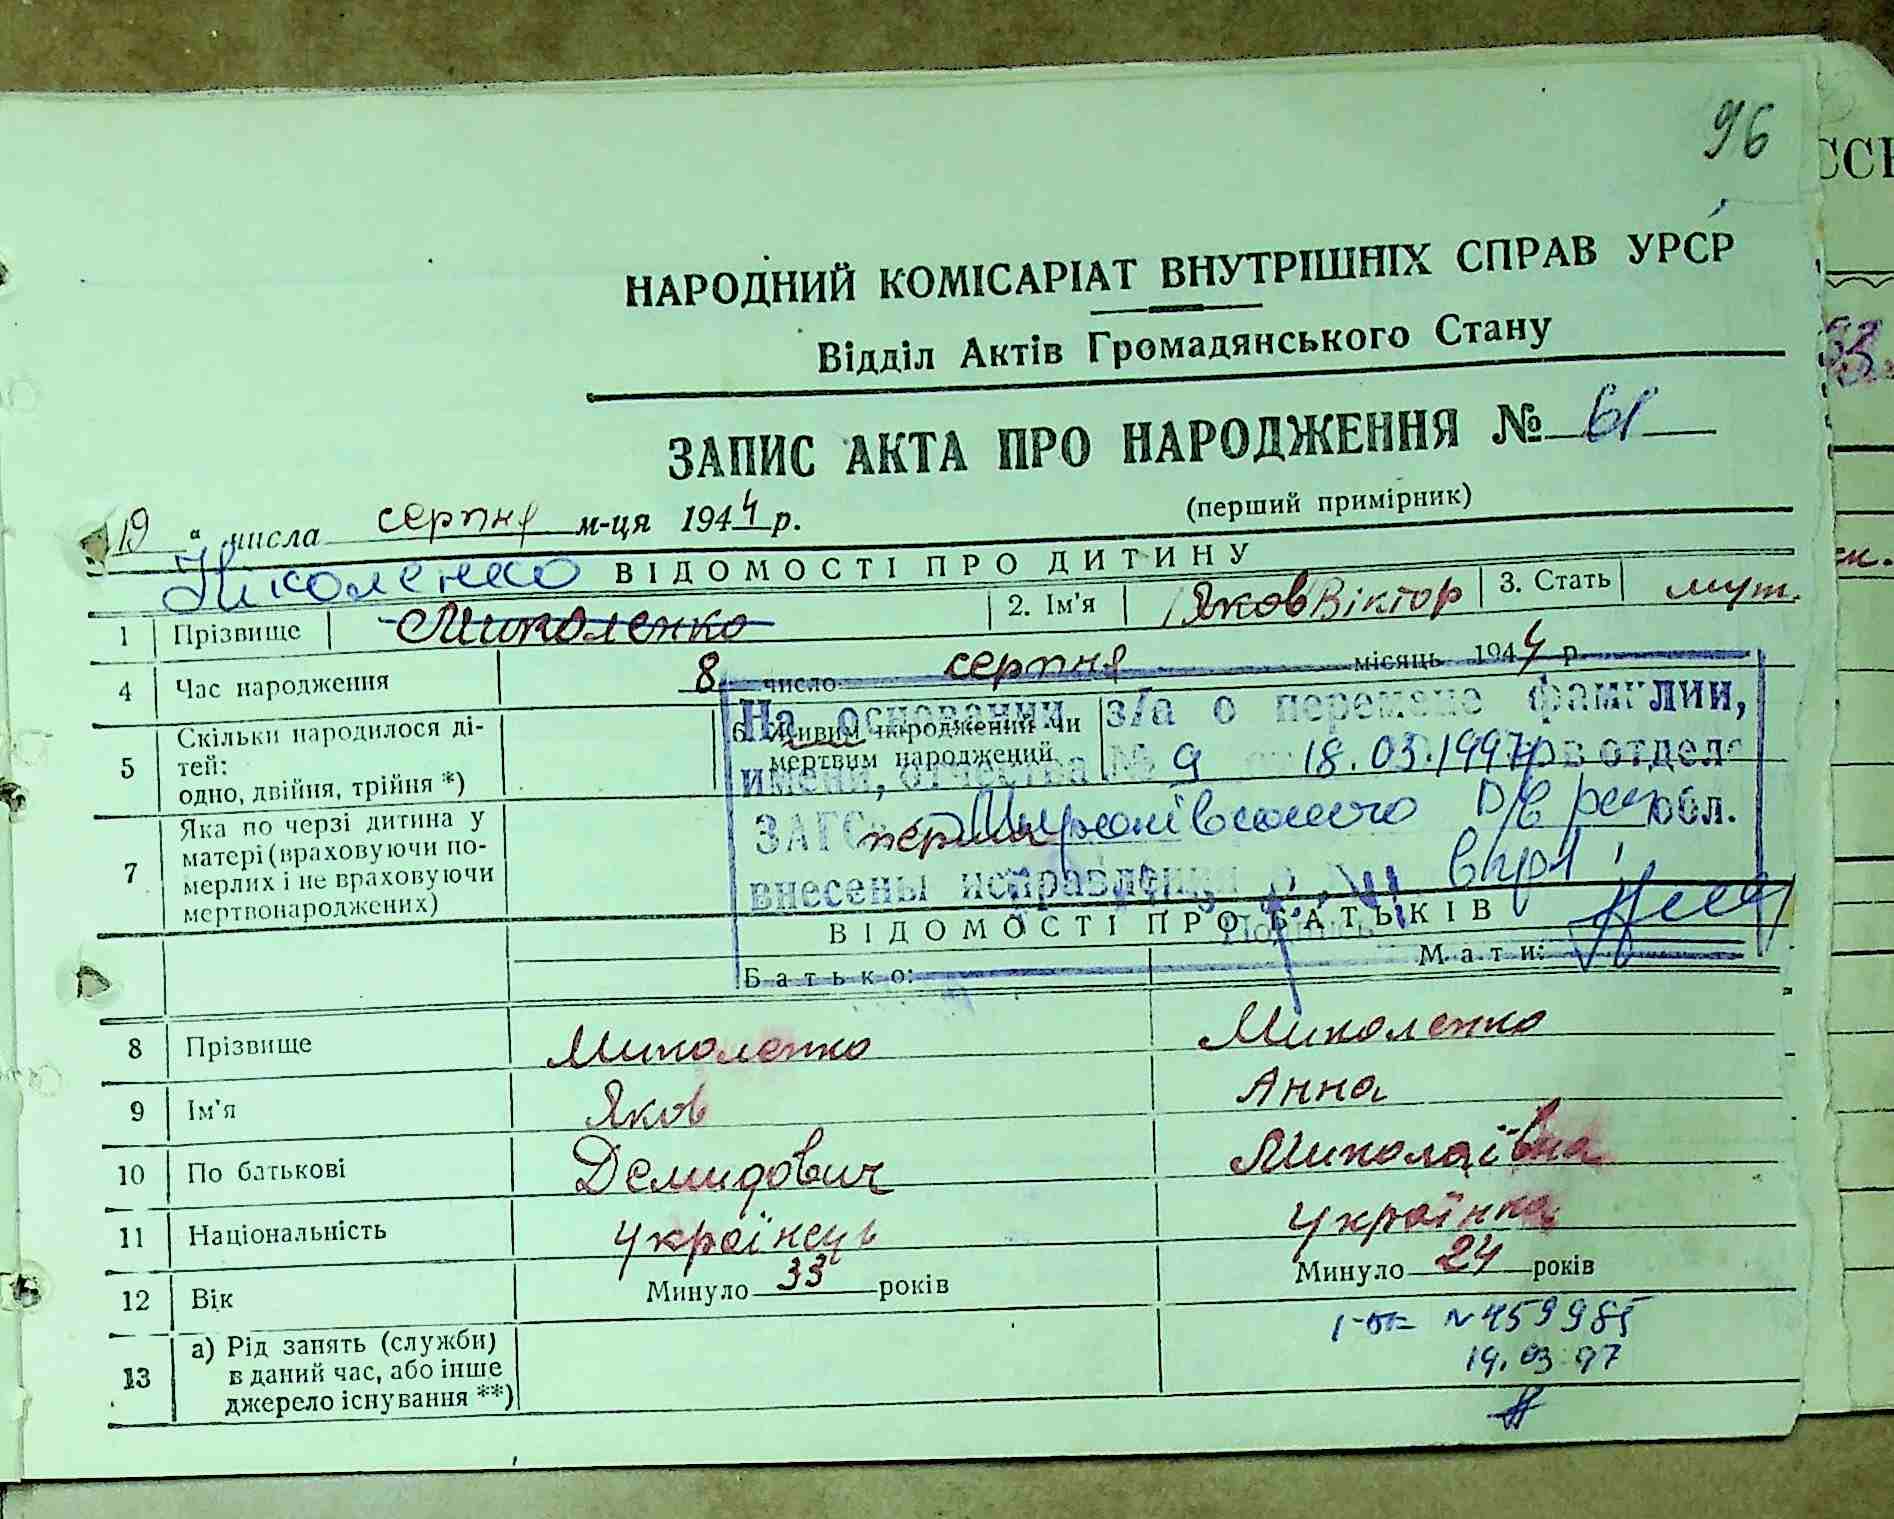 96
НАРОДНИЙ КОМІСАРІАТ ВНУТРІШНІХ СПРАВ УРСР
Відділ Актів Громадянського Стану
ЗАПИС АКТА ПРО НАРОДЖЕННЯ № 61
(перший примірник)
19 " числа серпня м-ця 1944 р.
Ніколенко
ВІДОМОСТІ ПРО ДИТИНУ
1 Прізвище Миколенко 2. Ім'я Яков Віктор 3. Стать муж.
4 Час народження 8 число серпня місяць 1944 р.
На основании з/а о перемене фамилии,
5 Скільки народилося ді-
тей:
одно, двійня, трійня *)
6. Живим народжений чи
мертвим народжений
имени, отчества № 9 18.03.1997 в отделе
ЗАГС Миронівського р/в обл.
7 Яка по черзі дитина у
матері (враховуючи по-
мерлих і не враховуючи
мертвонароджених)
перша
внесены исправления
Подпись
ВІДОМОСТІ ПРО БАТЬКІВ
Батько: Мати:
8 Прізвище Миколенко Миколенко
9 Ім'я Яков Анна
10 По батькові Демидович Миколаївна
11 Національність Українець Українка
12 Вік Минуло 33 років Минуло 24 років
13 а) Рід занять (служби)
в даний час, або інше
джерело існування **)
N 459985
19.03.97